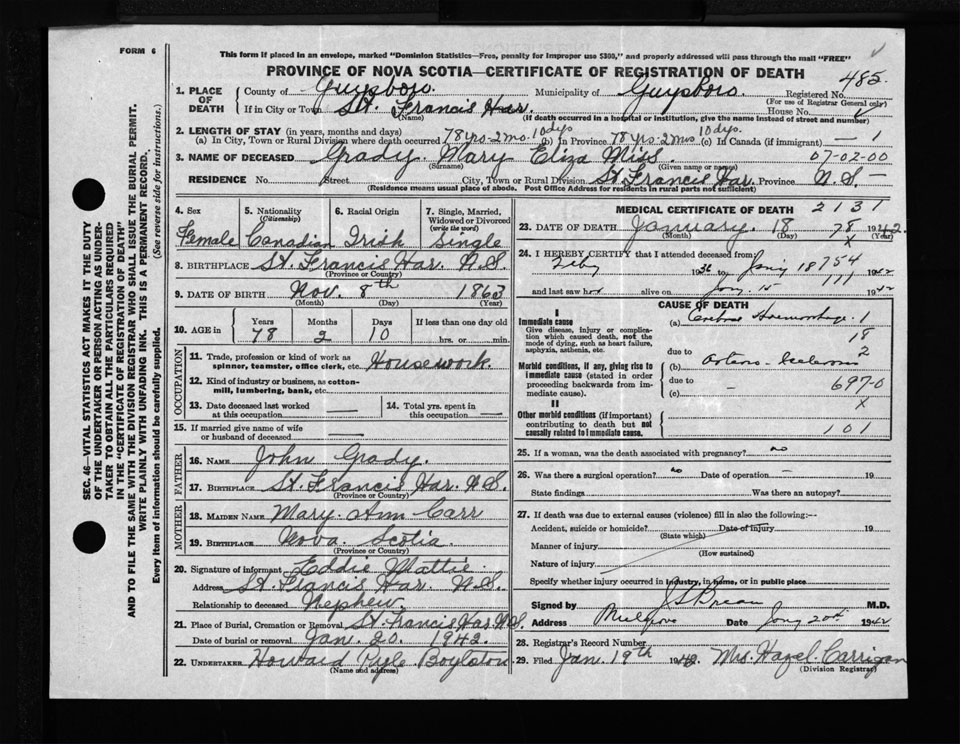 FORM 6
This form if placed in an envelope, marked "Dominion Statistics—Free, penalty for improper use $300," and properly addressed will pass through the mail "FREE"
PROVINCE OF NOVA SCOTIA—CERTIFICATE OF REGISTRATION OF DEATH
485
1. PLACE OF DEATH
County of Guysboro. Municipality of Guysboro. Registered No.
(For use of Registrar General only)
If in City or Town St. Francis Har. House No.
(Name) (If death occurred in a hospital or institution, give the name instead of street and number)
2. LENGTH OF STAY (in years, months and days)
(a) In City, Town or Rural Division where death occurred 78 yrs-2 mo. 10 dys (b) in Province 78 yrs-2 mos 10 dys. (c) In Canada (if immigrant) 1
3. NAME OF DECEASED Grady. Mary Eliza Miss. 07-02-00
(Surname) (Given name or names)
RESIDENCE No. Street City, Town or Rural Division St. Francis Har. Province N.S.—
(Residence means usual place of abode. Post Office Address for residents in rural parts not sufficient)
4. Sex
Female
5. Nationality (Citizenship)
Canadian
6. Racial Origin
Irish
7. Single, Married, Widowed or Divorced (write the word)
Single
8. BIRTHPLACE St. Francis Har. N.S.
(Province or Country)
9. DATE OF BIRTH Nov. 8th 1863
(Month) (Day) (Year)
10. AGE in
Years Months Days If less than one day old
78 2 10 hrs. or min.
OCCUPATION
11. Trade, profession or kind of work as spinner, teamster, office clerk, etc. Housework.
12. Kind of industry or business, as cotton-mill, lumbering, bank, etc.
13. Date deceased last worked at this occupation
14. Total yrs. spent in this occupation
15. If married give name of wife or husband of deceased
FATHER
16. Name John Grady.
17. Birthplace St. Francis Har. N.S.
(Province or Country)
MOTHER
18. Maiden Name Mary Ann Carr
19. Birthplace Nova Scotia
(Province or Country)
20. Signature of informant Eddie Mattie
Address St. Francis Har. N.S.
Relationship to deceased Nephew.
21. Place of Burial, Cremation or Removal St. Francis Har. N.S.
Date of burial or removal Jan. 20. 1942.
22. UNDERTAKER Howard Pyle Boylston
(Name and address)
MEDICAL CERTIFICATE OF DEATH 2131
23. DATE OF DEATH January. 18 78 1942.
(Month) (Day) x (Year)
24. I HEREBY CERTIFY that I attended deceased from
Feby 1936 to Jany 18 754 1942
111
and last saw her alive on Jany. 15 1942
CAUSE OF DEATH
I
Immediate cause
Give disease, injury or complication which caused death, not the mode of dying, such as heart failure, asphyxia, asthenia, etc.
(a) Cerebral Haemorrhage. 1
18
due to 2
Morbid conditions, if any, giving rise to immediate cause (stated in order proceeding backwards from immediate cause).
(b) Arterio-Sclerosis
due to 697-0
(c) —
x
II
Other morbid conditions (if important) contributing to death but not causally related to immediate cause.
101
25. If a woman, was the death associated with pregnancy? no
26. Was there a surgical operation? no Date of operation — 19
State findings Was there an autopsy?
27. If death was due to external causes (violence) fill in also the following:—
Accident, suicide or homicide? Date of injury 19
(State which)
Manner of injury
(How sustained)
Nature of injury
Specify whether injury occurred in industry, in home, or in public place
Signed by M.D.
Address Mulgrave Date Jany 20th 1942
28. Registrar's Record Number
29. Filed Jan. 19th 1942. Mrs. Hazel Carrigan
(Division Registrar)
SEC. 46—VITAL STATISTICS ACT MAKES IT THE DUTY
OF THE UNDERTAKER OR PERSON ACTING AS UNDER-
TAKER TO OBTAIN ALL THE PARTICULARS REQUIRED
IN THE "CERTIFICATE OF REGISTRATION OF DEATH"
AND TO FILE THE SAME WITH THE DIVISION REGISTRAR WHO SHALL ISSUE THE BURIAL PERMIT.
WRITE PLAINLY WITH UNFADING INK. THIS IS A PERMANENT RECORD.
Every item of information should be carefully supplied. (See reverse side for instructions.)